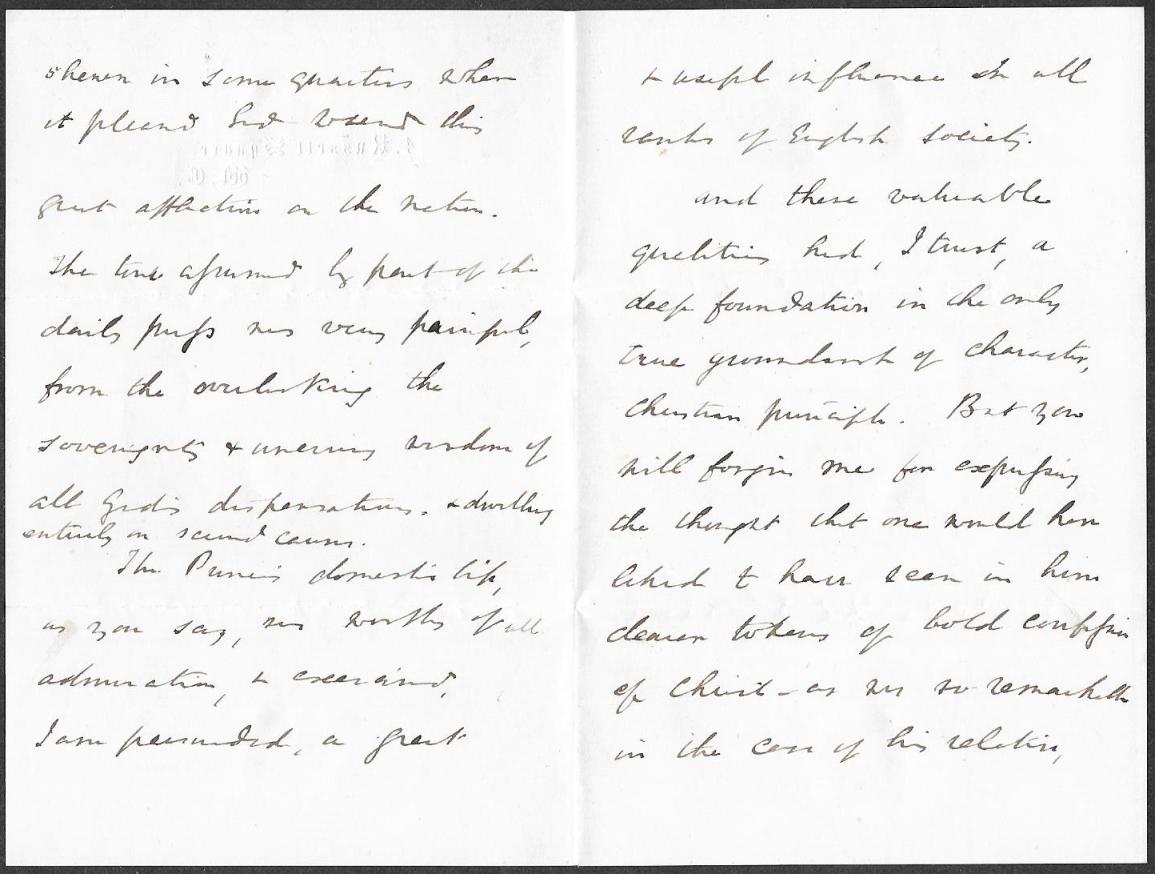 shewn in some quarters when
it pleased God to send this
great affliction on the nation.
The tone assumed by part of the
daily press was very painful,
from the overlooking the
sovereignty & unerring wisdom of
all God's dispensations. & dwelling
entirely on second causes.
The Prince's domestic life,
as you say, was worthy of all
admiration, & exercised,
I am persuaded, a great
& useful influence on all
ranks of English society.
And these valuable
qualities had, I trust, a
deep foundation in the only
true groundwork of character,
Christian principle. But you
will forgive me for expressing
the thought that one would have
liked to have seen in him
clearer tokens of bold confession
of Christ - as was so remarkable
in the case of his relative,
Russell Square
W.C.